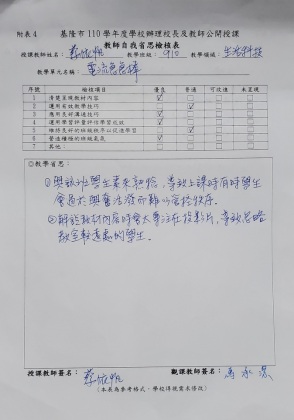 附表4
基隆市110學年度學校辦理校長及教師公開授課
教師自我省思檢核表
授課教師姓名：蔡依帆 教學班級：910 教學領域：生活科技
教學單元名稱：電流急急棒
序號 檢核項目 優良 普通 可改進 未呈現
1 清楚呈現教材內容 ✓
2 運用有效教學技巧 ✓
3 應用良好溝通技巧 ✓
4 運用學習評量評估學習成效 ✓
5 維持良好的班級秩序以促進學習 ✓
6 營造積極的班級氣氛 ✓
◎教學省思：
①與該班學生素來熟稔，導致上課時有時學生
會過於興奮活潑而難以管控秩序。
②解說教材內容時會太專注在投影片，導致忽略
教室較遠處的學生。
授課教師簽名：蔡依帆 觀課教師簽名：
（本表為參考格式，學校得視需求修改）